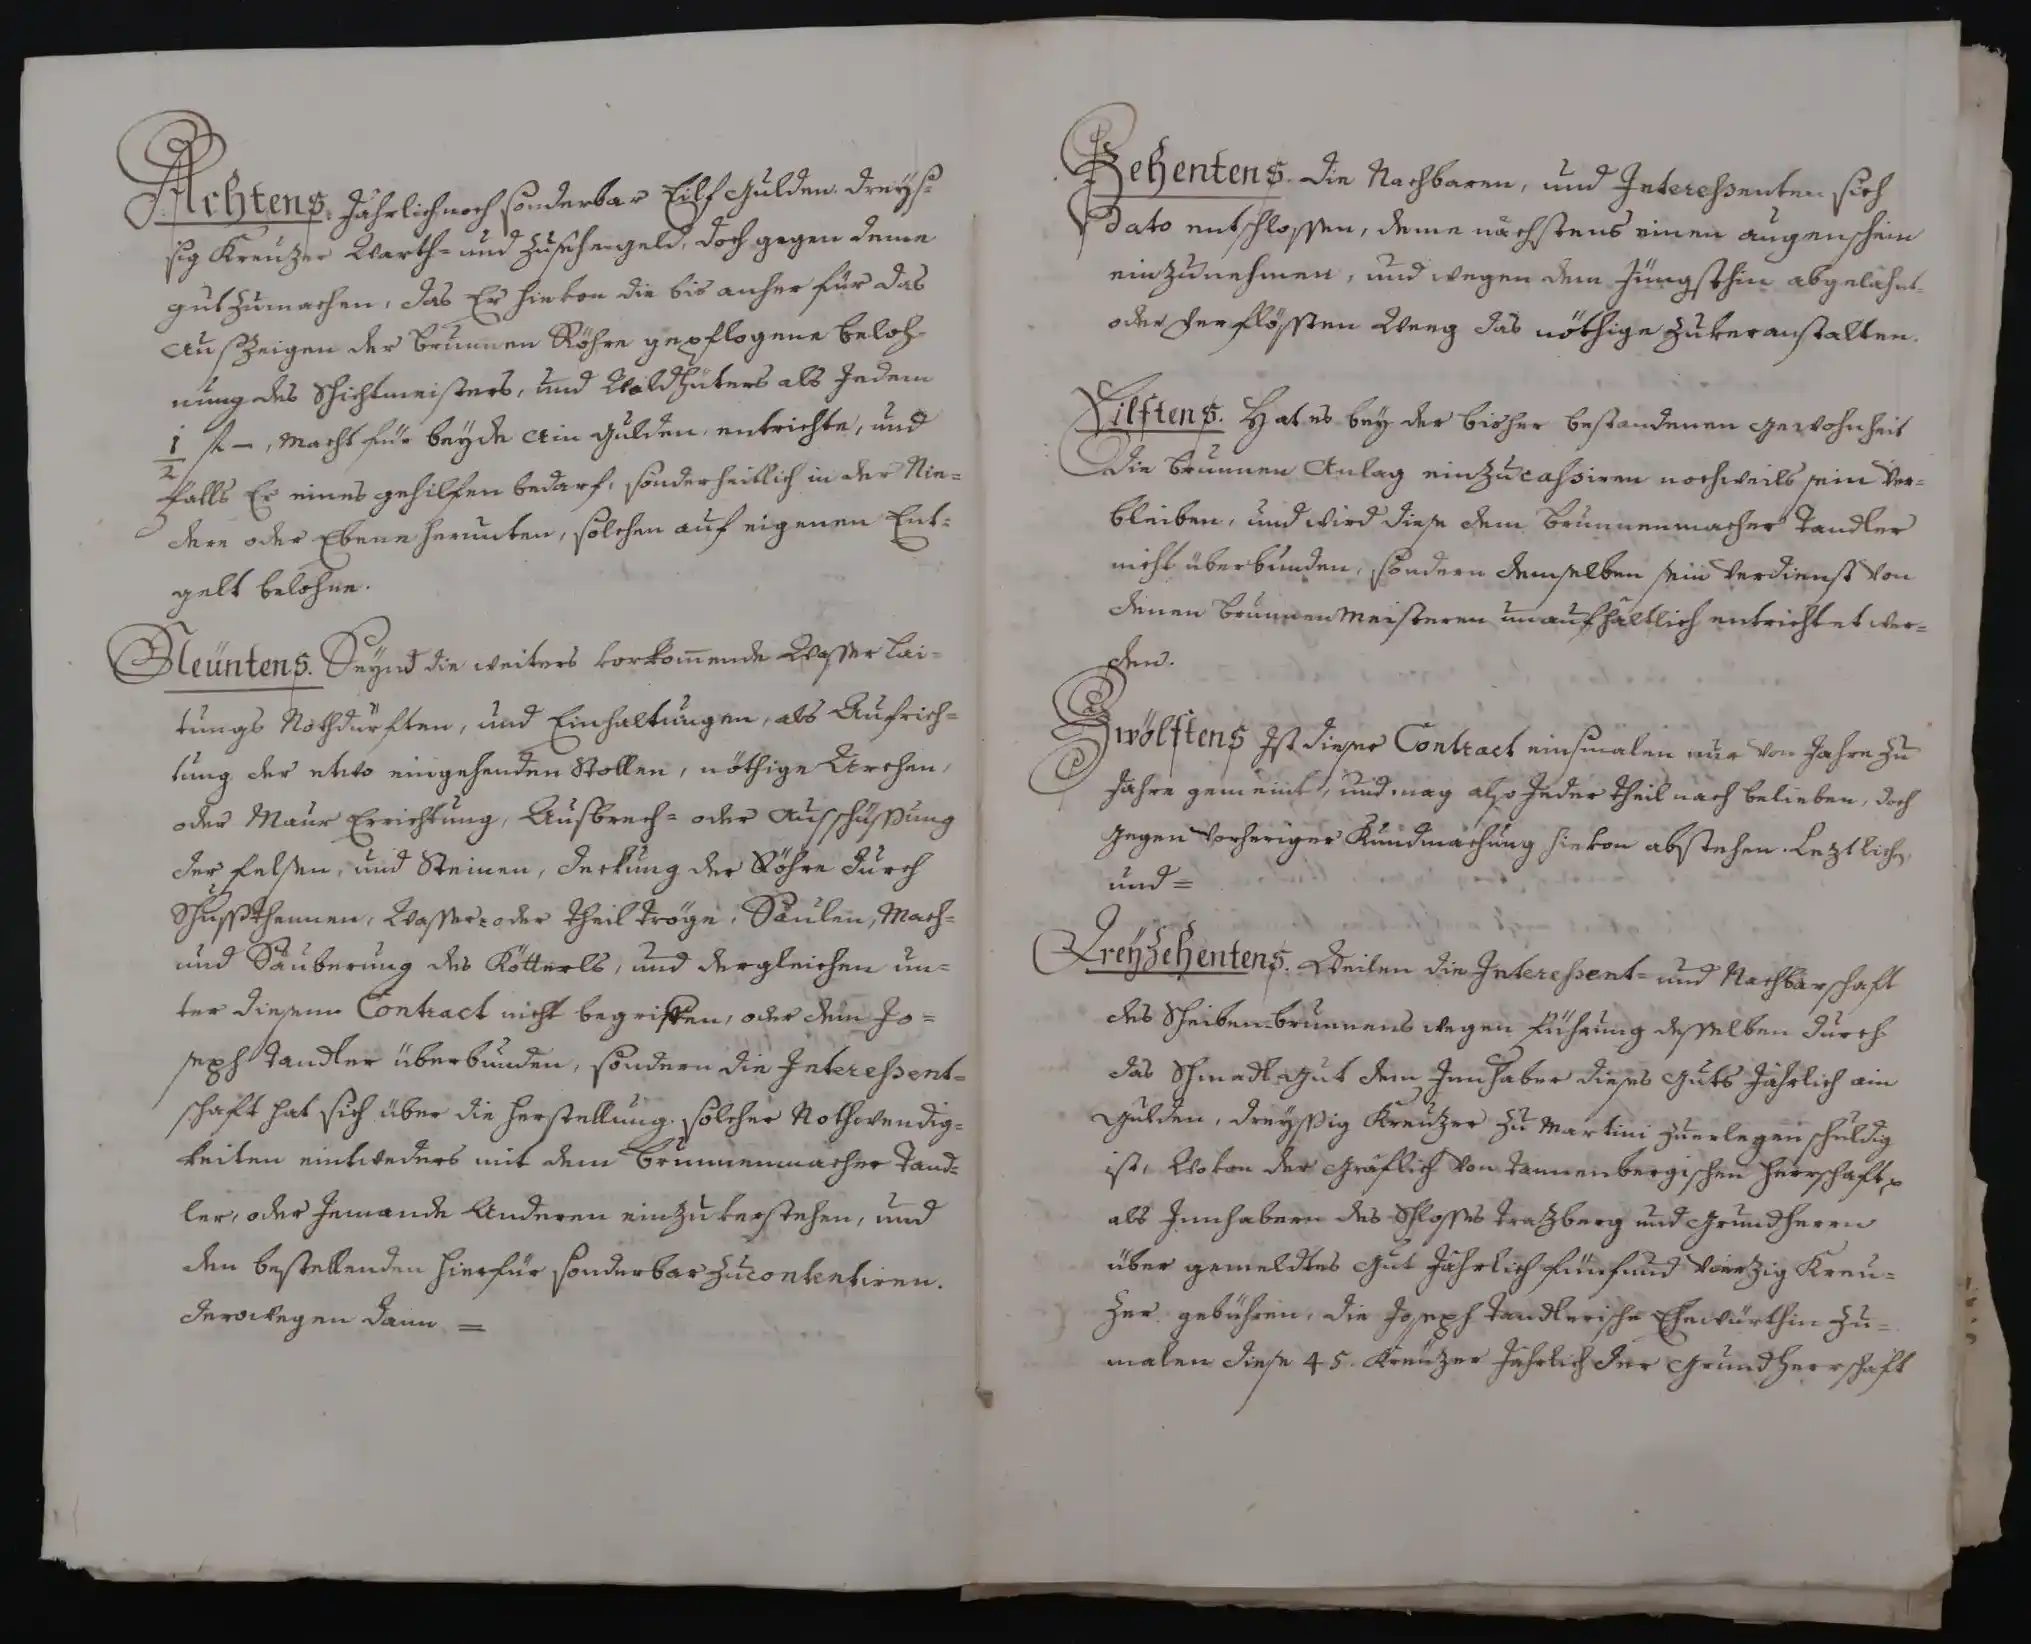 Achtens. Jährlich noch sonderbar Eilf Gulden dreys-
sig Kreuzer Warth- und Zusehengeld, doch gegen deme
gutzumachen, das Er hievon die bis anher für das
Auszeigen der Brunnen Röhre gepflogene beloh-
nung des Schichtmeisters, und Waldhüters als Jedem
1/2 fl –, macht für beyde ain Gulden, entrichte, und
falls Er eines gehilfen bedarf, sonderheitlich in der Nie-
dere oder Ebene herunten, solchen auf eigenen Ent-
gelt belohne.
Neüntens. Seynd die weiters vorkommende Wasser Lai-
tungs Nothdürften, und Einhaltungen, als Aufrich-
tung der etwo eingehenden Stollen, nöthige Archen,
oder Maur Errichtung, Ausbrech- oder Ausschüssung
der felsen, und Steinen, deckung der Röhre durch
Schussthennen, Wasser- oder Theil tröge, Säulen, Mach-
und Säuberung des Kötterls, und dergleichen un-
ter diesem Contract nicht begriffen, oder dem Jo-
seph Tandler überbunden, sondern die Interessent-
schaft hat sich über die herstellung solcher Nothwendig-
keiten entweders mit dem Brunnenmacher Tand-
ler, oder Jemande Anderen einzuverstehen, und
den bestellenden hierfür sonderbar zu contentiren.
derowegen dann =
Zehentens. Die Nachbaren, und Interessenten sich
dato entschlossen, deme nächstens einen augenschein
einzunehmen, und wegen dem Jüngsthin abgelähnt-
oder verflössten Weeg das nöthige zu veranstalten.
Eilftens. Hat es bey der bisher bestandenen gewohnheit
die Brunnen Anlag einzucassiren nochweils sein Ver-
bleiben, und wird diese dem Brunnenmacher Tandler
nicht überbunden, sondern demselben sein Verdienst von
denen Brunnen Meisteren unaufhältlich entrichtet wer-
den.
Zwölftens Ist dieser Contract einsmalen nur von Jahre zu
Jahre gemeint, und mag also Jeder theil nach belieben, doch
gegen vorheriger Kundmachung hievon abstehen. Leztlich,
und =
Dreyzehentens. Weilen die Interessent- und Nachbarschaft
des Scheiben-brunnens wegen führung desselben durch
das Schmadl Gut dem Innhaber dieses Guts Jährlich ain
Gulden, dreyssig Kreuzer zu Martini zuerlegen schuldig
ist, Wovon der Gräflich von Tannenbergischen Herrschaft,
als Innhabern des Schlosses Trazberg und Grundherrn
über gemeldtes Gut Jährlich fünfund vierzig Kreu-
zer gebühren, die Joseph Tandlerische Ehewürthin zu-
malen diese 45. Kreuzer Jährlich der Grundherrschaft